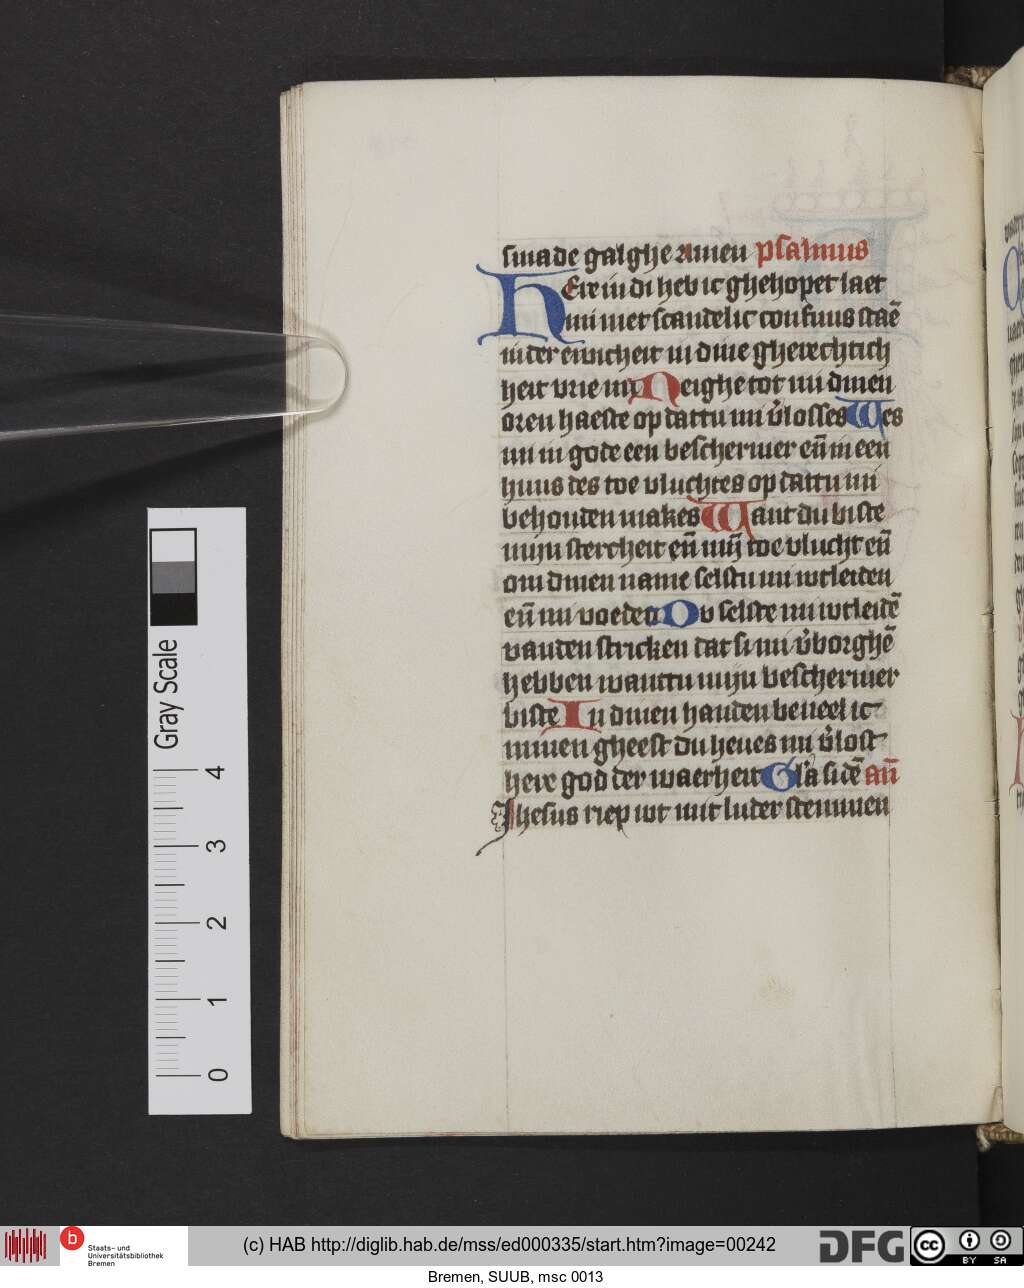 smade galghe Amen psalmus
HEre in di heb ic ghehopet laet
mi niet scandelic confuus staē
in der ewicheit in dine gherechtich
heit vrie mi Neighe tot mi dinen
oren haeste op dattu mi v̄losses Wes
mi in gode een beschermer eñ in een
huus des toe vluchtes op dattu mi
behouden makes Want du biste
mijn stercheit eñ mij toe vlucht eñ
om dinen name selstu mi wtleiden
eñ mi voeden Dv selste mi wtleidē
vanden stricken dat si mi v̄borghē
hebben wanttu mijn beschermer
biste In dinen handen beueel ic
minen gheest du heues mi v̄lost
here god der waerheit Gl'a sidē añ
Jhesus riep wt mit luder stemmen
Gray Scale
4
3
2
1
0
b
Staats- und
Universitätsbibliothek
Bremen
(c) HAB http://diglib.hab.de/mss/ed000335/start.htm?image=00242
DFG
cc
BY SA
Bremen, SUUB, msc 0013